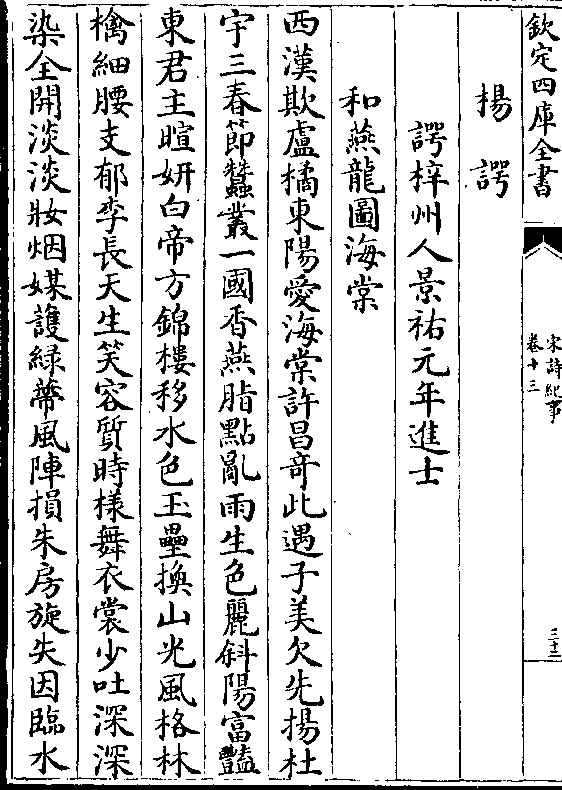 欽定四庫全書
宋詩紀事
卷十三
三十二
楊諤
諤梓州人景祐元年進士
和燕龍圖海棠
西漢欺盧橘東陽愛海棠許昌竒此遇子美欠先揚杜
宇三春節蠶叢一國香燕脂點亂雨生色麗斜陽富豔
東君主暄妍白帝方錦樓移水色玉壘換山光風格林
檎細腰支郁李長天生笑容質時様舞衣裳少吐深深
染全開淡淡妝烟媒護緑蔕風陣損朱房旋失因臨水